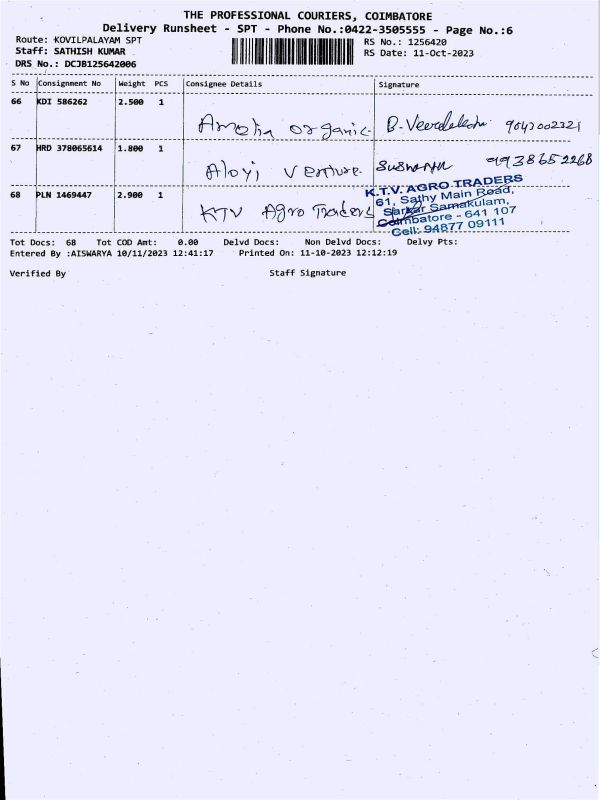 THE PROFESSIONAL COURIERS, COIMBATORE
Delivery Runsheet - SPT - Phone No.:0422-3505555 - Page No.:6
Route: KOVILPALAYAM SPT
Staff: SATHISH KUMAR
DRS No.: DCJB125642006
RS No.: 1256420
RS Date: 11-Oct-2023
S No Consignment No Weight PCS Consignee Details Signature
66 KDI 586262 2.500 1 organic B.
67 HRD 378065614 1.800 1 Aloyi venture 9938652268
68 PLN 1469447 2.900 1 KTV Agro Traders
K.T.V. AGRO TRADERS
61, Sathy Main Road,
Sarkar Samakulam,
Coimbatore - 641 107
Cell: 94877 09111
Tot Docs: 68 Tot COD Amt: 0.00 Delvd Docs: Non Delvd Docs: Delvy Pts:
Entered By :AISWARYA 10/11/2023 12:41:17 Printed On: 11-10-2023 12:12:19
Verified By Staff Signature